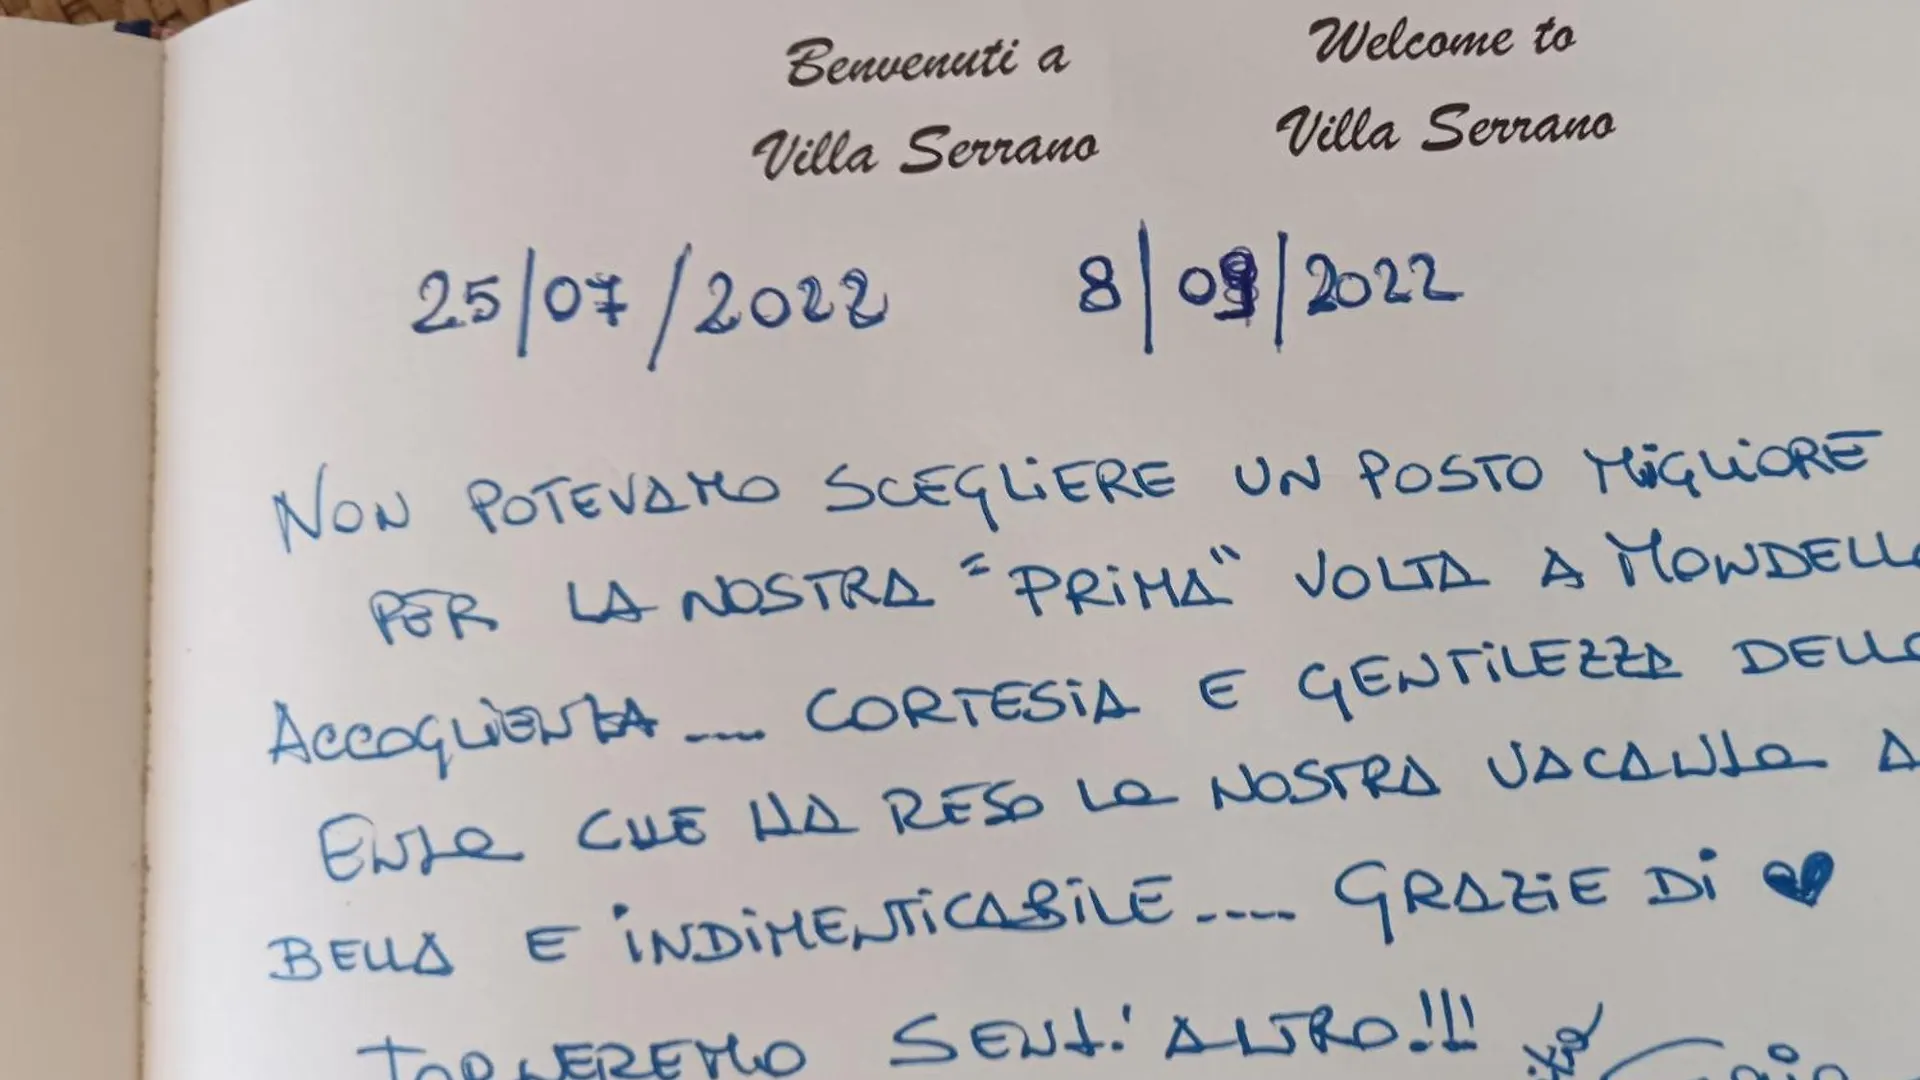 Benvenuti a
Villa Serrano
Welcome to
Villa Serrano
25/07/2022 8/09/2022
NON POTEVAMO SCEGLIERE UN POSTO MIGLIORE
PER LA NOSTRA "PRIMA" VOLTA A MONDELLO
ACCOGLIENZA .... CORTESIA E GENTILEZZA DELLA
ENZA CHE HA RESO LA NOSTRA VACANZA A
BELLA E INDIMENTICABILE .... GRAZIE DI ♥
TORNEREMO SENZ'ALTRO!!!